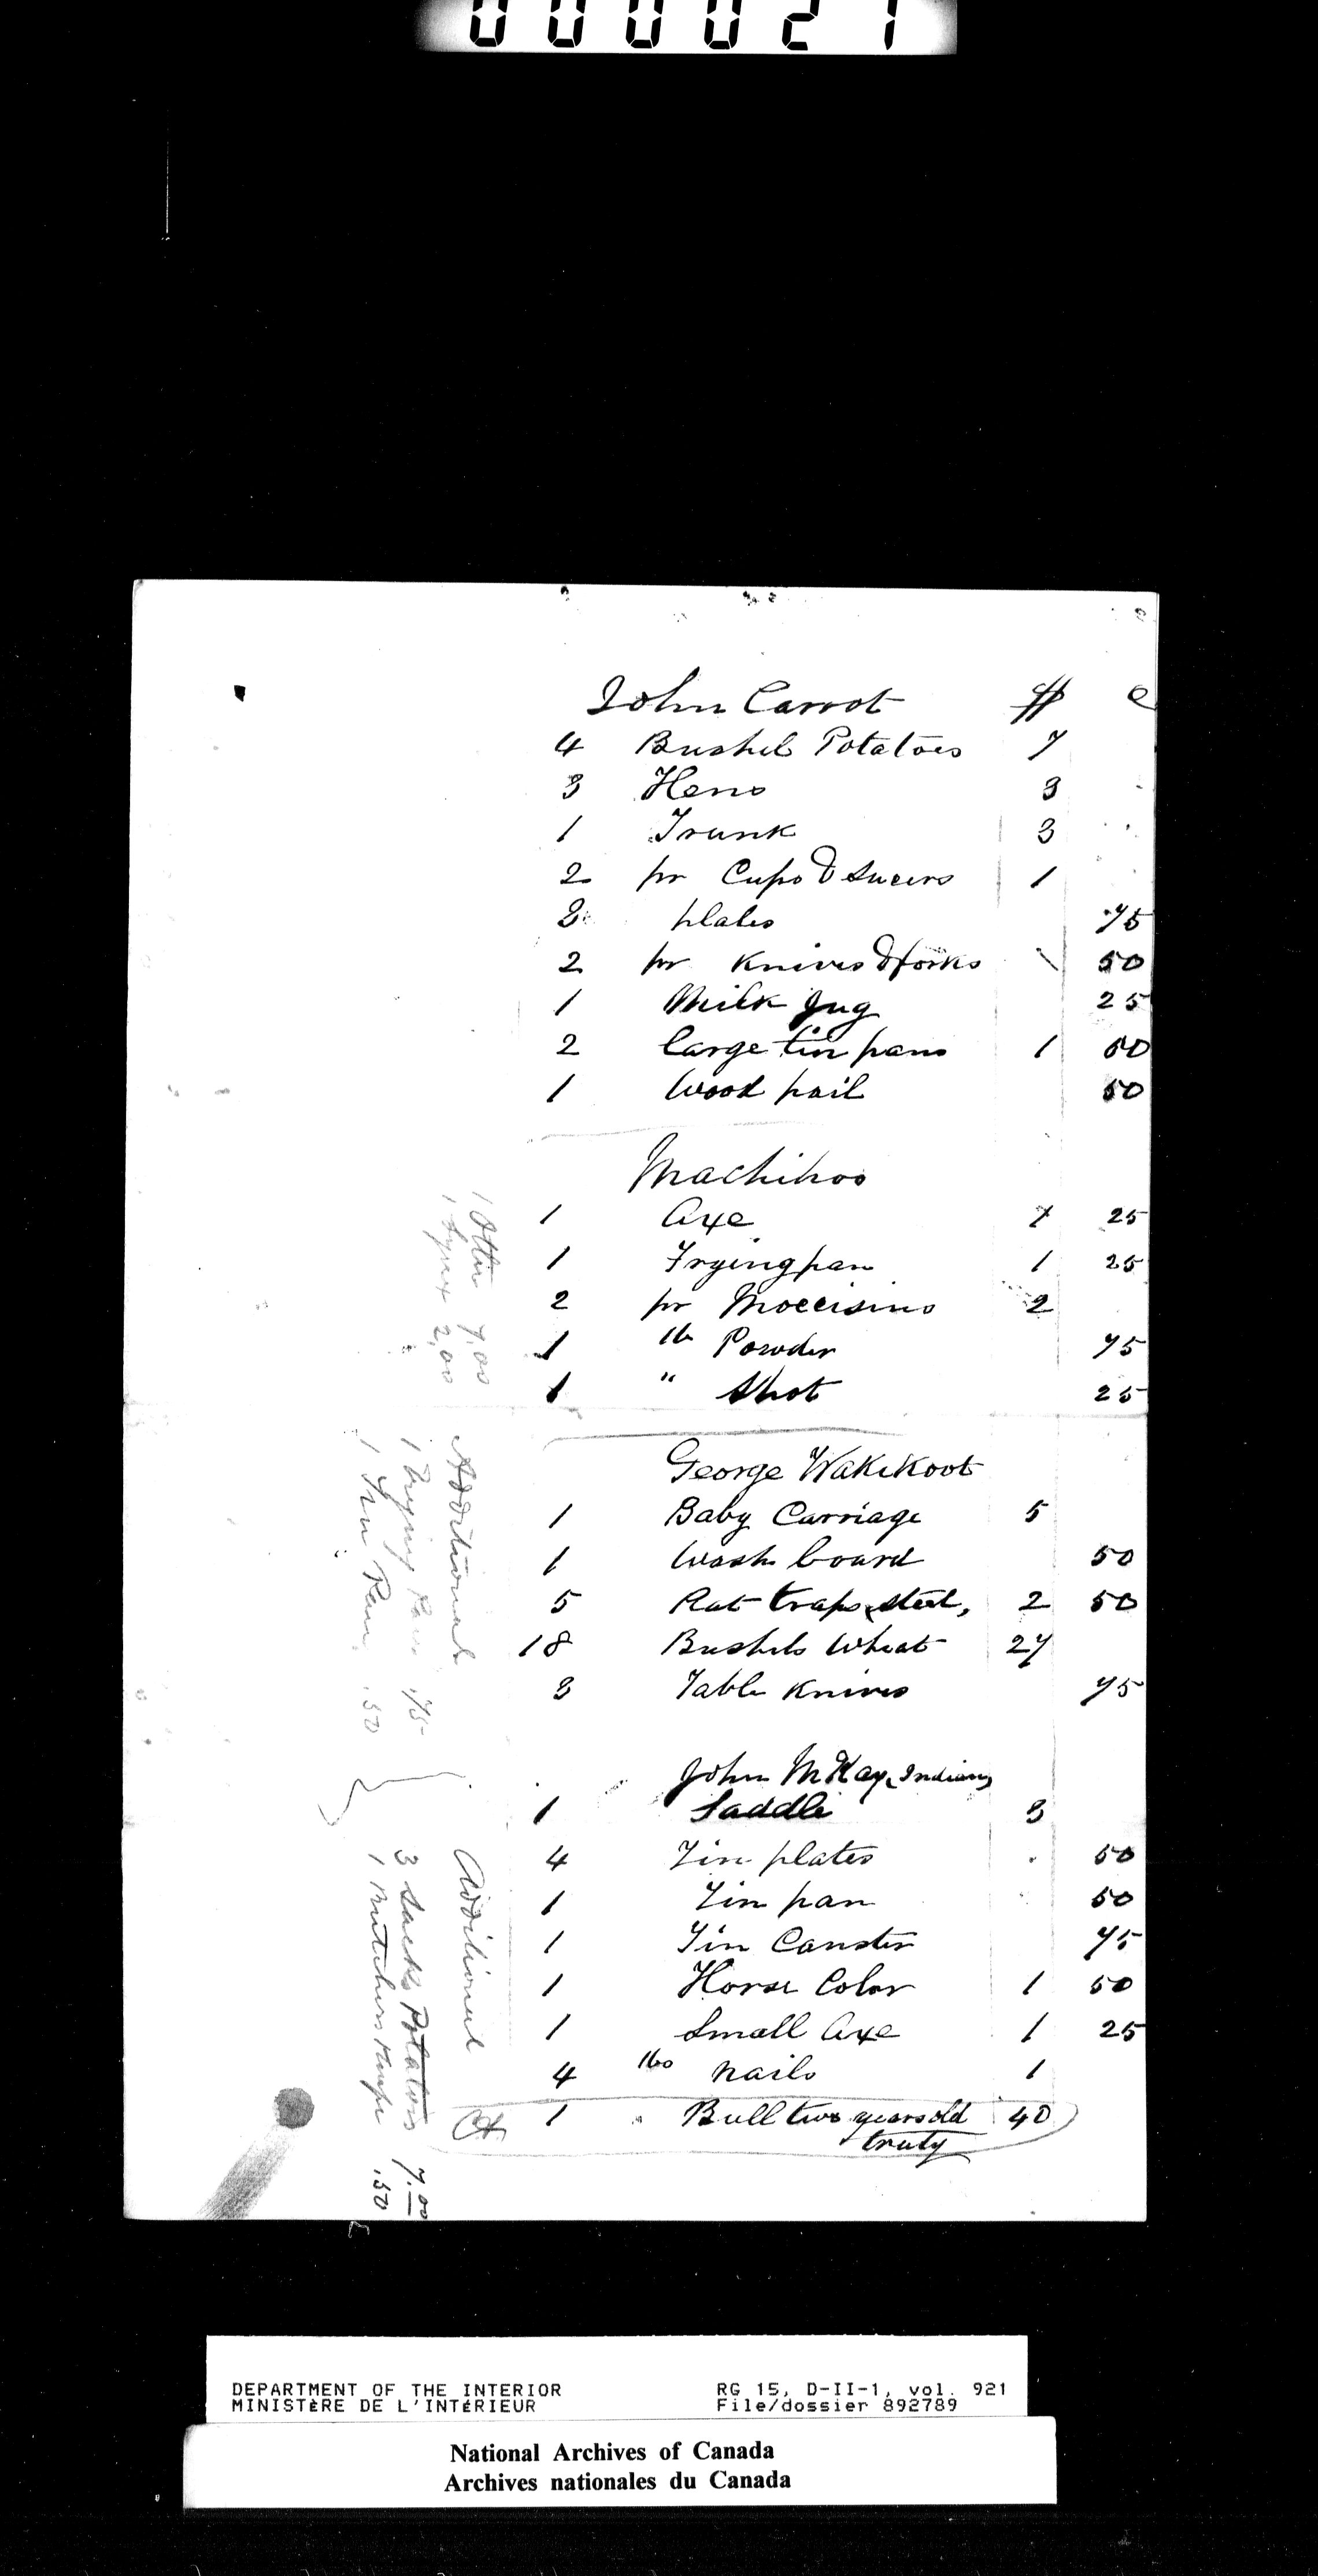 000021
John Carrot $ c
4 Bushel Potatoes 7
3 Hens 3
1 Trunk 3
2 pr Cups & Sucers 1
3 plates 75
2 pr Knives & forks 50
1 Milk Jug 25
2 large tin pans 1 50
1 Wood pail 50
Machihoo
1 Axe 1 25
1 Fryingpan 1 25
2 pr Moccisins 2
1 lb Powder 75
1 " Shot 25
1 Otter 7.00
1 Lynx 2.00
George Wakikoot
1 Baby Carriage 5
1 Wash board 50
5 Rat traps, steel, 2 50
18 Bushels Wheat 27
3 Table Knives 75
Additional
1 Frying Pan .75
1 Pan .50
John McKay, Indian,
1 Saddle 3
4 Tin plates 50
1 Tin pan 50
1 Tin Canster 75
1 Horse Color 1 50
1 Small Axe 1 25
4 lbs nails 1
1 Bull two years old 40
truty
Additional
3 Sacks Potatoes 7.00
1 Butchers Knife .50
DEPARTMENT OF THE INTERIOR RG 15, D-II-1, vol. 921
MINISTÈRE DE L'INTÉRIEUR File/dossier 892789
National Archives of Canada
Archives nationales du Canada